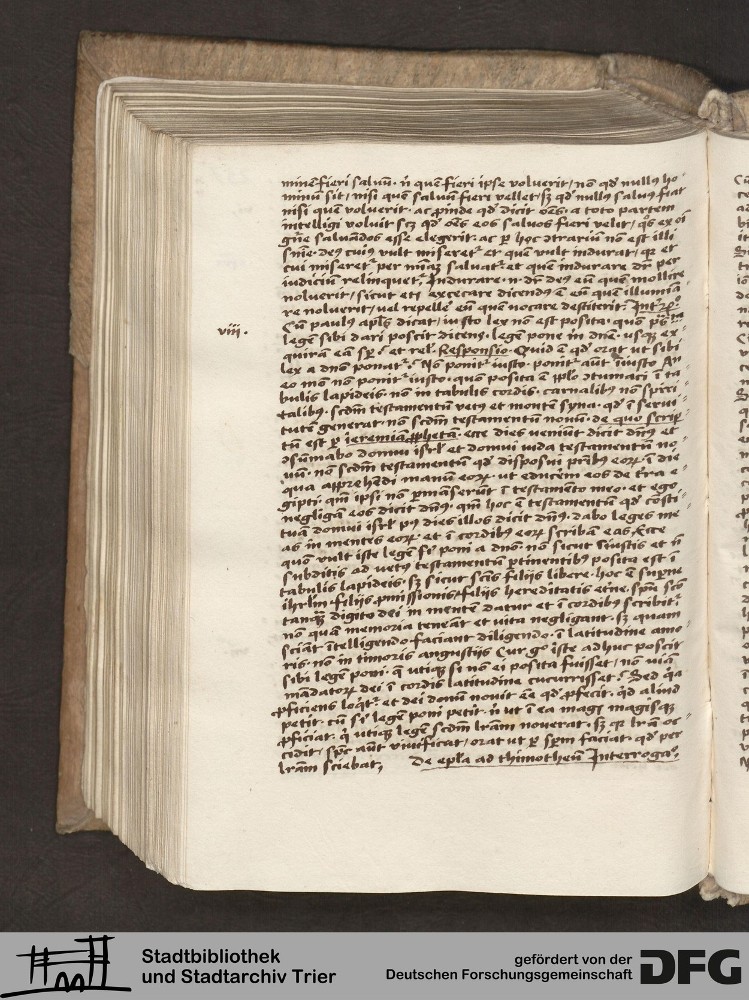 minē fieri saluū· ñ quē fieri ipse voluerit / nō qđ nullꝰ ho-
minū sit / nisi quē saluū fieri vellet / sꝫ qđ nullꝰ saluꝰ fiat
nisi quē voluerit· ac ꝓinde qđ dicit oēs· a toto partem
intelligi voluit scꝫ qđ oēs eos saluos fieri velit / qͦs ex oī
gn̄e saluādos esse elegerit· ac ꝑ hoc ꝯtrariū nō est illi
sn̄ie· deꝰ cuiꝰ vult miseret᷑ et quē vult indurat / qꝛ et
cui miseret᷑ per miāꝫ saluat᷑· et quē indurare dr̄ per
iudiciū relinquet᷑· Indurare· n· dr̄ deꝰ eū quē mollire
noluerit / sicut etī excecare dicendꝰ ē eū quē illumīa-
re noluerit / vel repellē eū quē vocare destiterit· Int᷑rͦ·
viii·
Cū paulꝰ apl̄s dicat / iusto lex nō est posita· quō
legē sibi dari poscit dicens· legē pone m̄ dn̄e· vsqꝫ ex-
quirā eā sp̄· et rel· Responsio· Quid ē qđ orat ut sibi
lex a dn̄o ponat᷑· Nō ponit᷑ iusto· ponit᷑ aūt iiusto An
eo mō nō ponit᷑ iusto· quō posita ē ꝓplo ꝯtumaci ī ta-
bulis lapideis· nō in tabulis cordis· carnalibꝰ nō spiri-
talibꝰ· scdm̄ testamentū vetꝰ et montē syna· qđ ī serui-
tutē generat· nō scdm̄ testamentū nouū· de quo scrip-
tū est ꝑ ieremiā ꝓphetā· ecce dies veniūt dicit dn̄s et
ꝯsūmabo domui isrl̄ et domui iuda testamentū no-
uū· nō scdm̄ testamentū qđ disposui pr̄ibꝰ eoꝝ ī die
qua apprehēdi manū eoꝝ· ut educem eos de t᷑ra e-
gipti· qm̄ ipsi nō ꝑmāserūt ī testamēto meo· et ego
negligā eos dicit dn̄s· qm̄ hoc ē testamentū qđ cōsti-
tuā domui isrl̄ pꝰ dies illos dicit dn̄s· dabo leges me-
as in mentes eoꝝ· et ī cordibꝰ eoꝝ scribā eas· Ecce
quō vult iste legē sī poni a dn̄o· nō sicut iiustis et ñ
subditis ad vetꝰ testamentū ꝑtinentibꝰ posita est ī
tabulis lapideis· sꝫ sicut scīs filijs libere· hoc ē suꝑne
ihrl̄m· filijs ꝓmissionis / filijs hereditatis etn̄e· spū scō
tanqͣ digito dei in mentē datur et ī cordibꝰ scribit᷑·
nō quā memoria teneāt et vita negligant· sꝫ quam
sciāt ītelligendo· faciant diligendo· ī latitudine amo-
ris· nō in timoris angustijs Cur gͦ iste adhuc poscit
sibi legē poni· q̄ utiqꝫ si nō ei posita fuisset / nō viā
mādatoꝝ dei ī cordis latitudine cucurrisset· Sed qͣ
ꝓficiens loqͥt᷑· et dei donū nouit eē qđ ꝓfecit· qđ aliud
petit· cū sī legē poni petit· ñ ut ī ea magꝭ magisqꝫ
ꝓficiat· qͥ utiqꝫ legē scdm̄ lr̄am nouerat· sꝫ qꝛ lr̄a oc-
cidit / sp̄c aūt viuificat / orat ut ꝑ sp̄m faciat· qđ per
lr̄am sciebat· De ep̄la ad thimotheū Interroga°
Stadtbibliothek
und Stadtarchiv Trier
gefördert von der
Deutschen Forschungsgemeinschaft
DFG